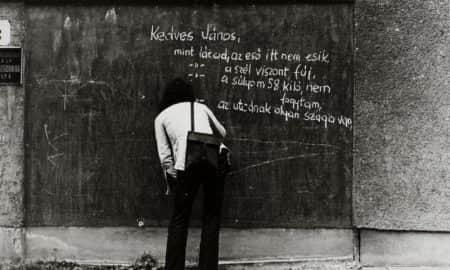 Kedves János,
mint látod, az eső itt nem esik,
-"- a szél viszont fúj,
-"- a súlyom 58 kiló, nem
fogytam,
az utcának olyan szaga van,